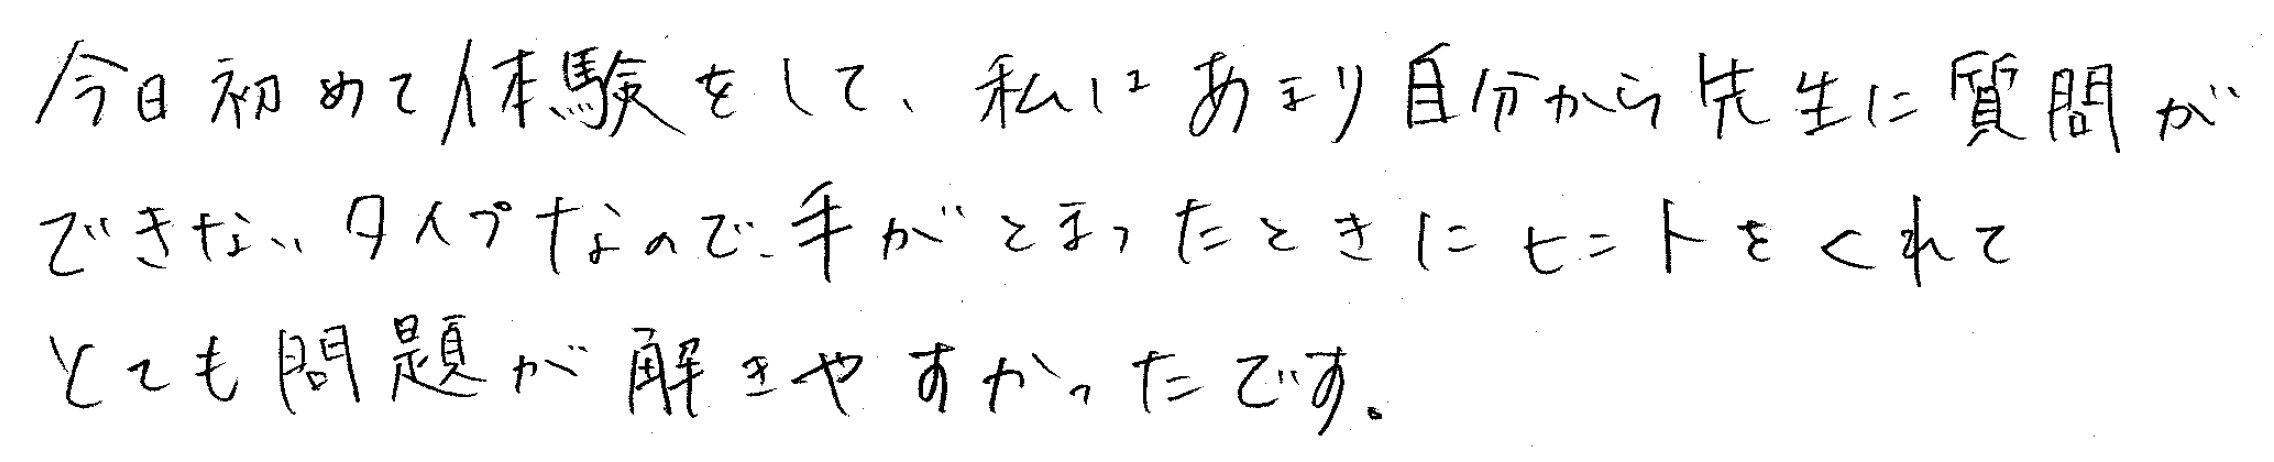 今日初めて体験をして、私はあまり自分から先生に質問が
できないタイプなので、手がとまったときにヒントをくれて
とても問題が解きやすかったです。